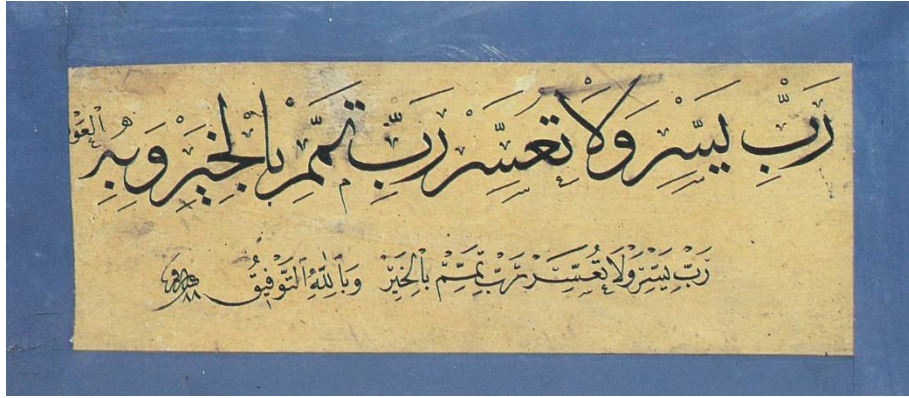 رَبِّ يَسِّرْ وَلَا تُعَسِّرْ رَبِّ تَمِّمْ بِالْخَيْرِ وَبِهِ الْعَوْنُ
رَبِّ يَسِّرْ وَلَا تُعَسِّرْ رَبِّ تَمِّمْ بِالْخَيْرِ وَبِاللّٰهِ التَّوْفِيقُ